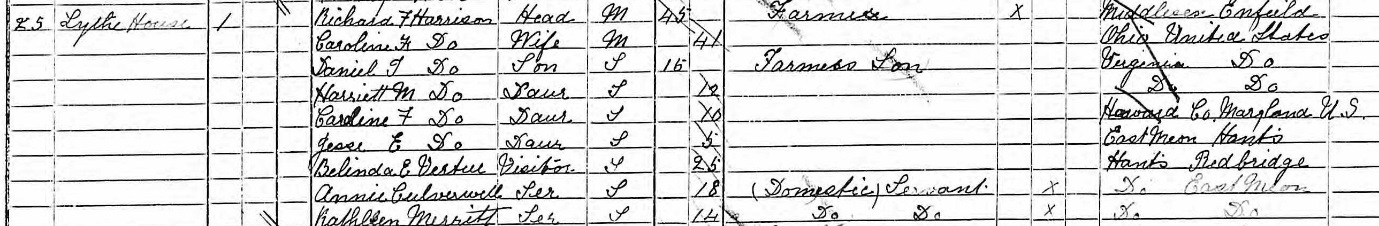 25 Lythe House 1 Richard F Harrison Head M 45 Farmer X Middlesex Enfield
Caroline F Do Wife M 41 Ohio United States
Daniel T Do Son S 15 Farmers Son Virginia Do
Harriett M Do Daur S 12 Do Do
Caroline F Do Daur S 10 Howard Co. Maryland U.S.
Jesse E Do Daur S 5 East Meon Hants
Belinda E Vertue Visitor S 25 Hants Redbridge
Annie Culverwell Ser S 18 (Domestic) Servant X Do East Meon
Kathleen Merritt Ser S 14 Do Do X Do Do